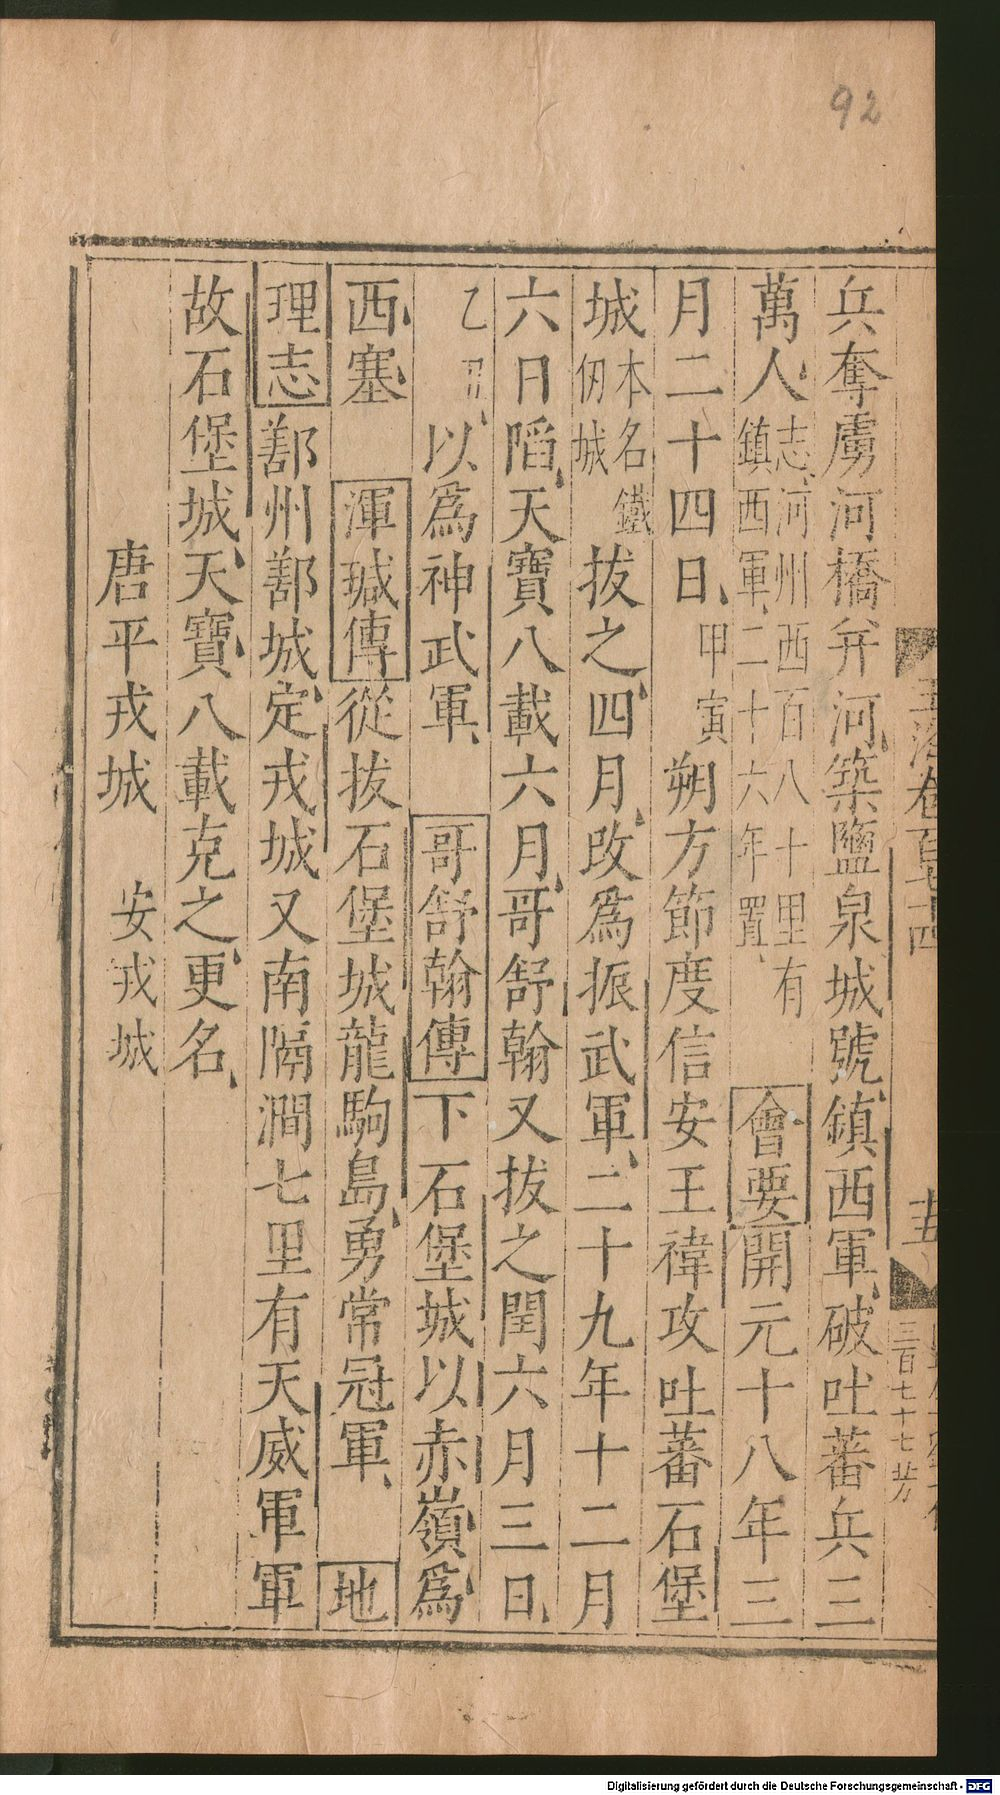 92
兵奪虜河橋并河築鹽泉城號鎮西軍破吐蕃兵三
萬人志河州西百八十里有鎮西軍二十六年置會要開元十八年三
月二十四日甲寅朔方節度信安王禕攻吐蕃石堡
城本名鐵仞城拔之四月改為振武軍二十九年十二月
六日陷天寶八載六月哥舒翰又拔之閏六月三日
乙丑以為神武軍哥舒翰傳下石堡城以赤嶺為
西塞渾瑊傳從拔石堡城龍駒島勇常冠軍地
理志鄯州鄯城定戎城又南隔澗七里有天威軍軍
故石堡城天寶八載克之更名
唐平戎城 安戎城
卷百七十四
三百七十七
Digitalisierung gefördert durch die Deutsche Forschungsgemeinschaft - DFG